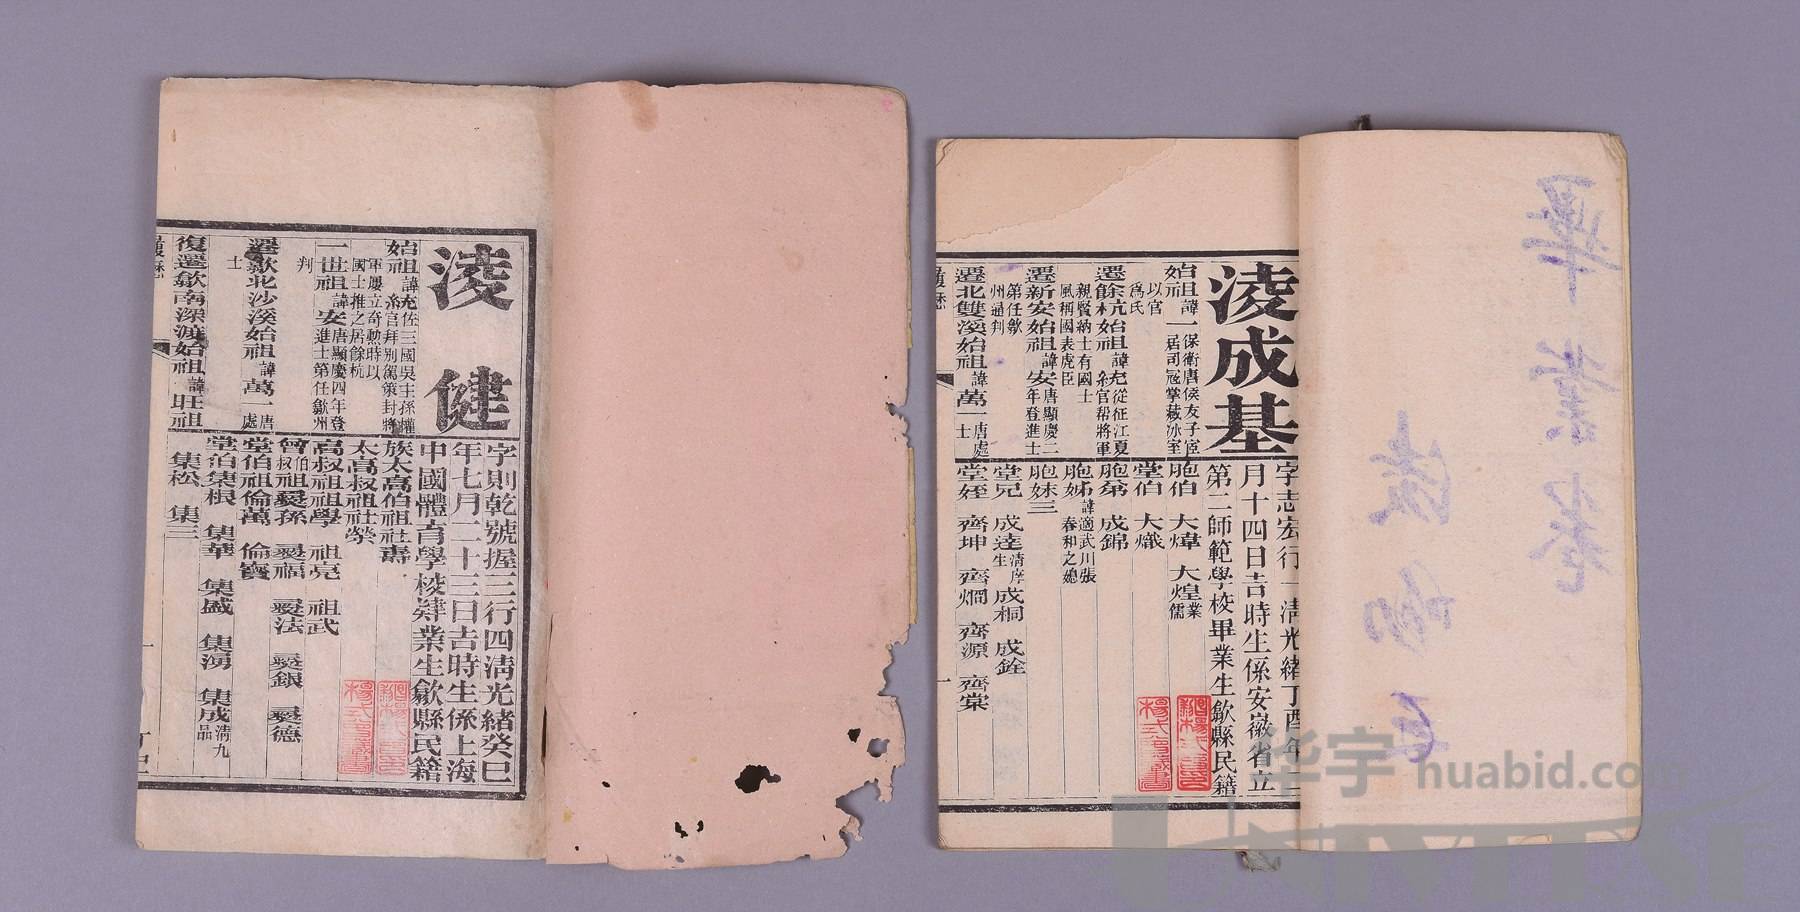 淩健
字則乾號握三行四淸光緒癸巳
年七月二十三日吉時生係上海
中國體育學校肄業生歙縣民籍
始祖諱充佐三國吳主孫權
軍屢立奇勳時以
國士推之居餘杭
一世祖諱安唐顯慶四年登
進士第任歙州
判
遷歙北沙溪始祖諱萬一唐處
士
復遷歙南深渡始祖諱旺祖
族太高伯祖社壽
太高叔祖社榮
高叔祖祖學 祖亮 祖武
曾伯叔祖
堂伯祖倫萬 倫寶
堂伯集根 集華 集盛 集湧 集成淸九品
集松 集三
淩成基
字志宏行一淸光緒丁酉年二
月十四日吉時生係安徽省立
第二師範學校畢業生歙縣民籍
始祖諱
以官
爲氏
遷餘杭始祖諱充從征江夏
親賢納士有國士
風稱國表虎臣
遷新安始祖諱安唐顯慶二年登進士
第任歙
州通判
遷北雙溪始祖諱萬一唐處士
胞伯 大煒 大煌業儒
堂伯 大熾
胞弟 成錦
胞姊諱適武川張
春和之媳
胞妹三
堂兄 成逵 成桐 成銓
堂姪 齊坤 齊燗 齊源 齊棠
华宇 huabid.com